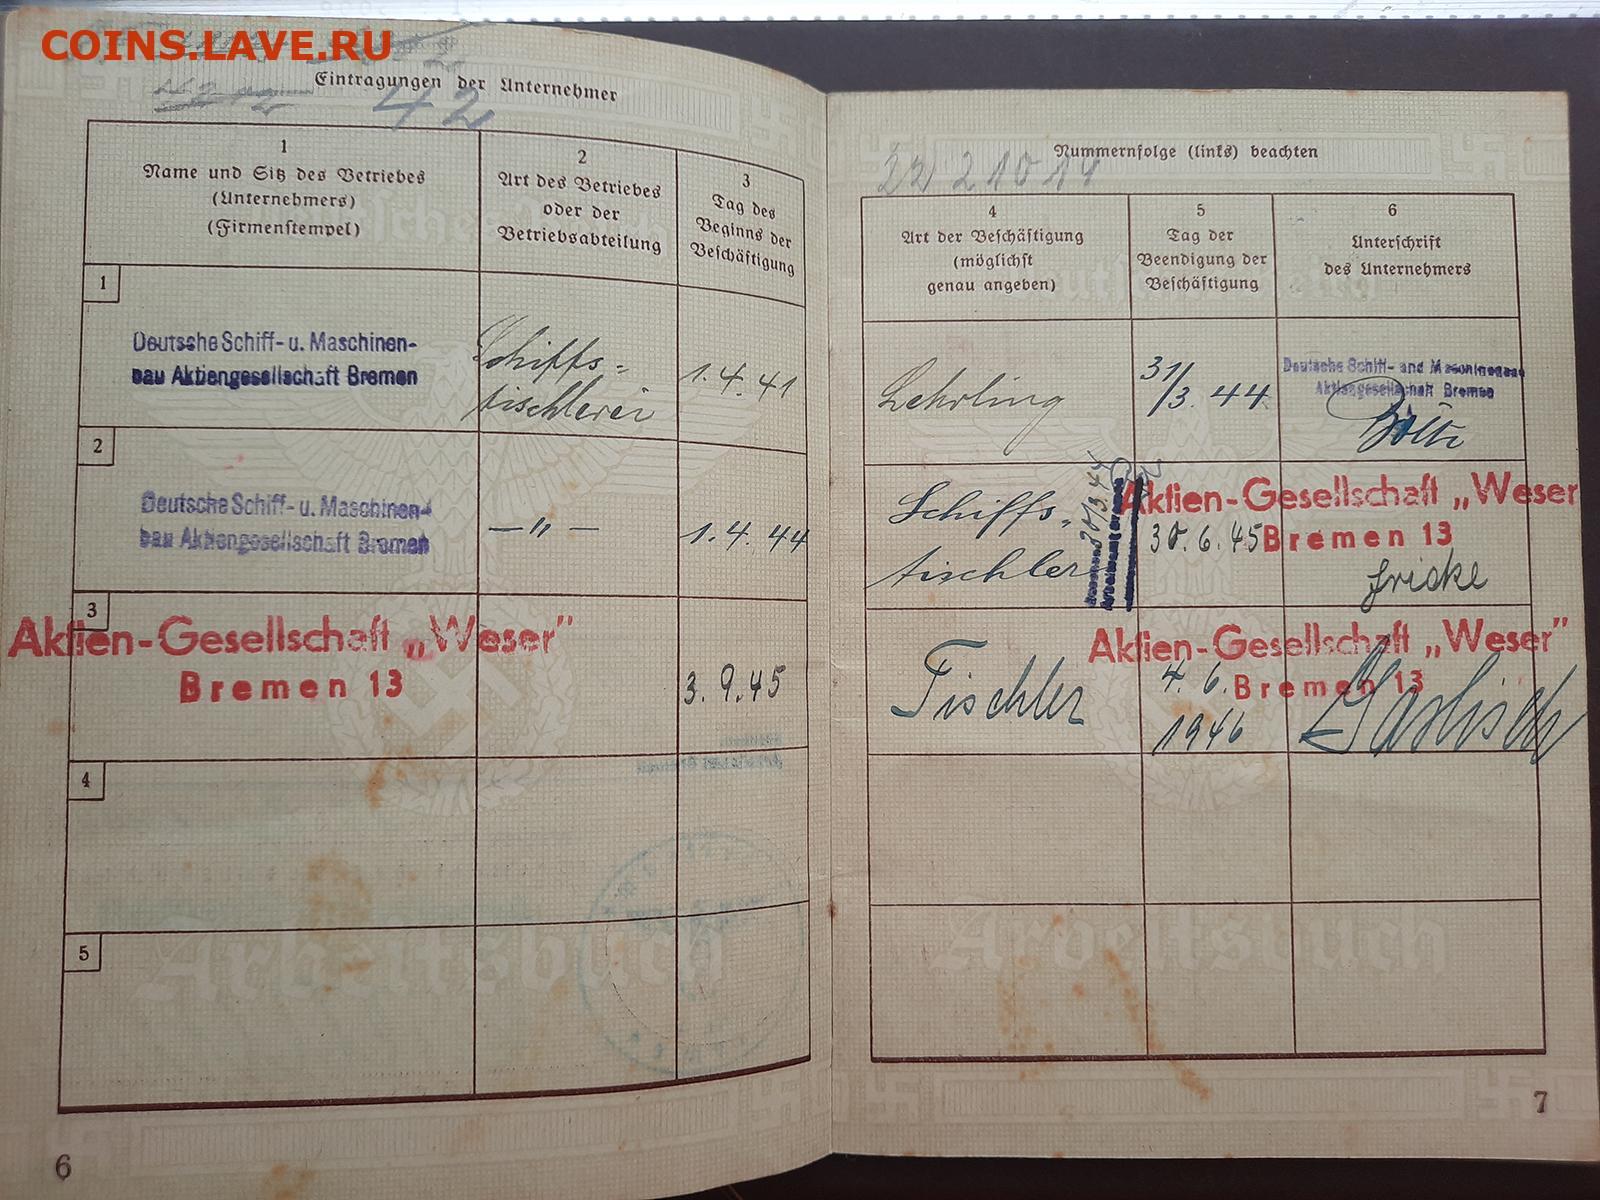 COINS.LAVE.RU
Eintragungen der Unternehmer
42
1
Name und Sitz des Betriebes
(Unternehmers)
(Firmenstempel)
2
Art des Betriebes
oder der
Betriebsabteilung
3
Tag des
Beginns der
Beschäftigung
1
Deutsche Schiff- u. Maschinen-
bau Aktiengesellschaft Bremen
Schiffs=
tischlerei
1.4.41
2
Deutsche Schiff- u. Maschinen-
bau Aktiengesellschaft Bremen
—"—
1.4.44
3
Aktien-Gesellschaft „Weser"
Bremen 13
3.9.45
4
5
Arbeitsbuch
6
Nummernfolge (links) beachten
22 2 10 14
4
Art der Beschäftigung
(möglichst
genau angeben)
5
Tag der
Beendigung der
Beschäftigung
6
Unterschrift
des Unternehmers
Lehrling
31/3.44
Deutsche Schiff- und Maschinenbau
Aktiengesellschaft Bremen
Schiffs=
tischler
Aktien-Gesellschaft „Weser
30.6.45
Bremen 13
Fricke
Tischler
Aktien-Gesellschaft „Weser"
4.6.
1946
Bremen 13
Arbeitsbuch
7